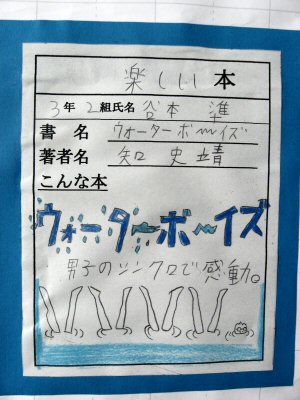 楽しい 本
3年 2組氏名 谷本 準
書名 ウォーターボーイズ
著者名 矢口 史靖
こんな本
ウォーターボーイズ
男子のシンクロで感動。